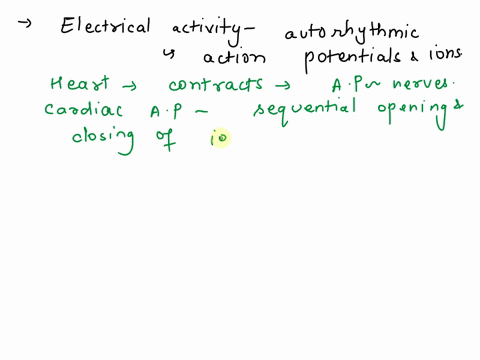 → Electrical activity- autorhythmic
↳ action potentials & ions
Heart → contracts → A.P~ nerves.
Cardiac A.P ~ sequential opening &
closing of io